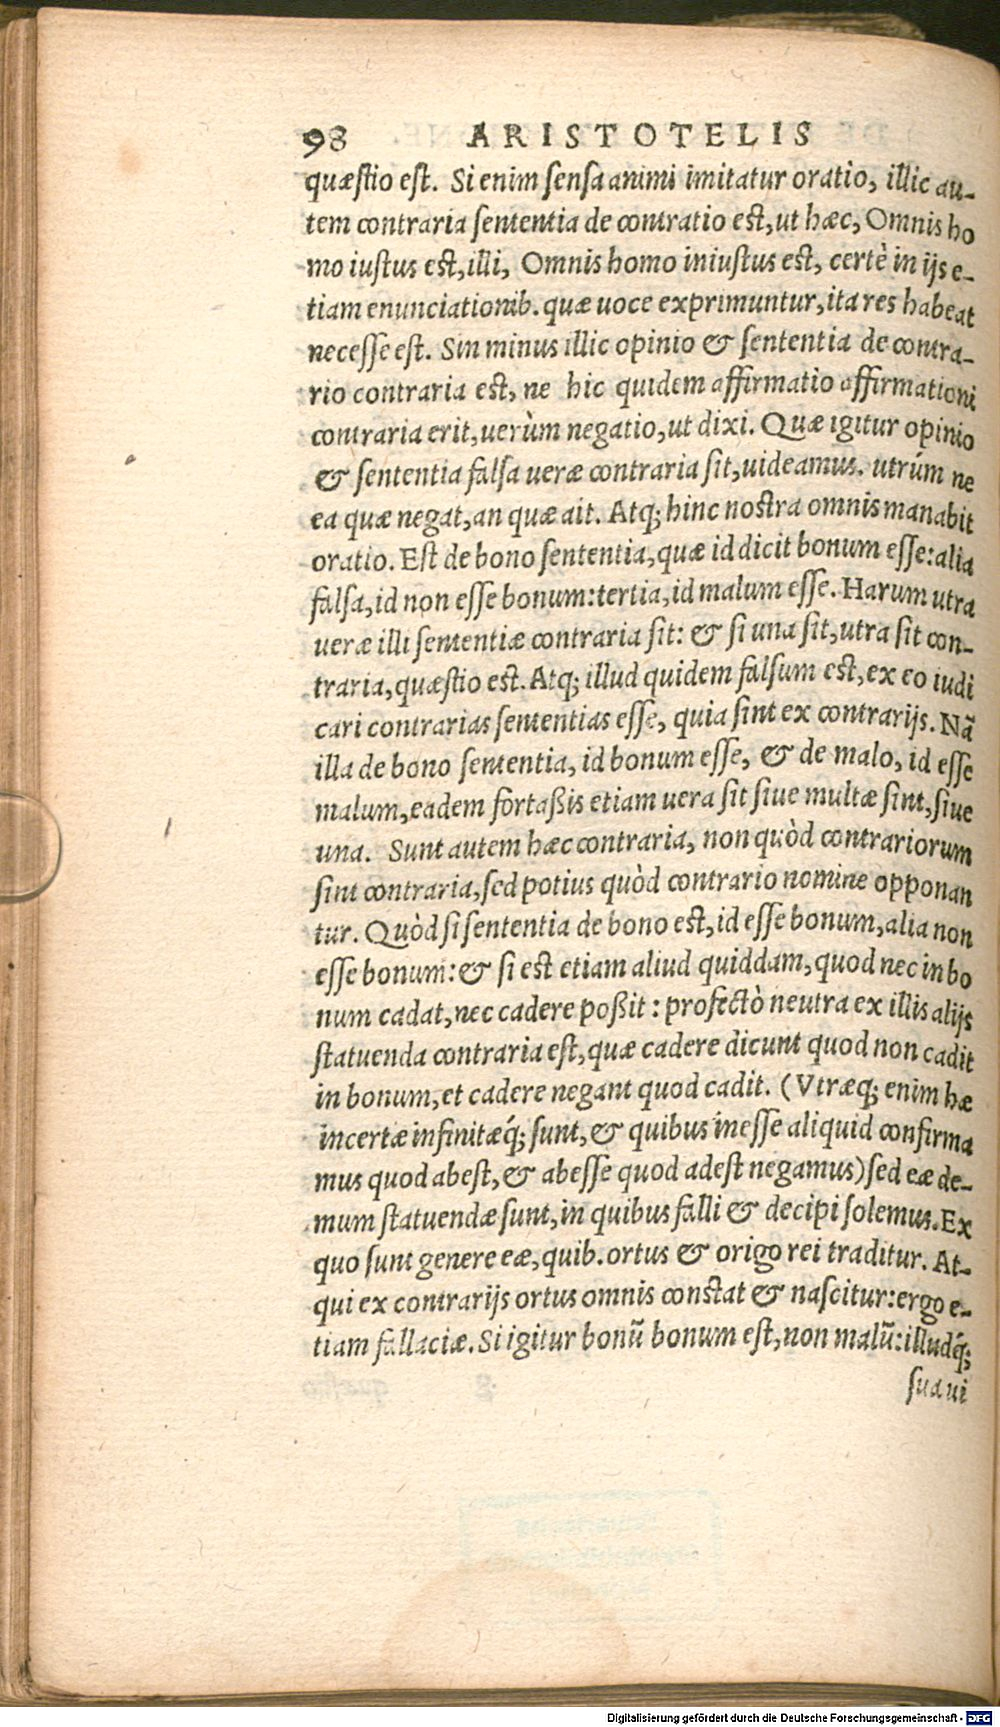 98 ARISTOTELIS
quæſtio eſt. Si enim ſenſa animi imitatur oratio, illic au-
tem contraria ſententia de contratio eſt, ut hæc, Omnis ho
mo iuſtus eſt, illi, Omnis homo iniuſtus eſt, certè in ijs e-
tiam enunciationib. quæ uoce exprimuntur, ita res habeat
neceſſe eſt. Sin minus illic opinio & ſententia de contra-
rio contraria eſt, ne hic quidem affirmatio affirmationi
contraria erit, uerùm negatio, ut dixi. Quæ igitur opinio
& ſententia falſa ueræ contraria ſit, uideamus. utrúm ne
ea quæ negat, an quæ ait. Atq; hinc noſtra omnis manabit
oratio. Eſt de bono ſententia, quæ id dicit bonum eſſe: alia
falſa, id non eſſe bonum: tertia, id malum eſſe. Harum utra
ueræ illi ſententiæ contraria ſit: & ſi una ſit, utra ſit con-
traria, quæſtio est. Atq; illud quidem falſum eſt, ex eo iudi
cari contrarias ſententias eſſe, quia ſint ex contrarijs. Nã
illa de bono ſententia, id bonum eſſe, & de malo, id eſſe
malum, eadem fortaßis etiam uera ſit ſiue multæ ſint, ſiue
una. Sunt autem hæc contraria, non quòd contrariorum
ſint contraria, ſed potius quòd contrario nomine opponan
tur. Quòd ſi ſententia de bono eſt, id eſſe bonum, alia non
eſſe bonum: & ſi est etiam aliud quiddam, quod nec in bo
num cadat, nec cadere poßit: profectò neutra ex illis alijs
ſtatuenda contraria eſt, quæ cadere dicunt quod non cadit
in bonum, et cadere negant quod cadit. (Vtræq; enim hæ
incertæ infinitæq́; ſunt, & quibus ineſſe aliquid confirma
mus quod abeſt, & abeſſe quod adeſt negamus) ſed eæ de-
mum ſtatuendæ ſunt, in quibus falli & decipi ſolemus. Ex
quo ſunt genere eæ, quib. ortus & origo rei traditur. At-
qui ex contrarijs ortus omnis conſtat & naſcitur: ergo e-
tiam fallaciæ. Si igitur bonũ bonum eſt, non malũ: illudq́;
ſuaui
Digitalisierung gefördert durch die Deutsche Forschungsgemeinschaft - DFG